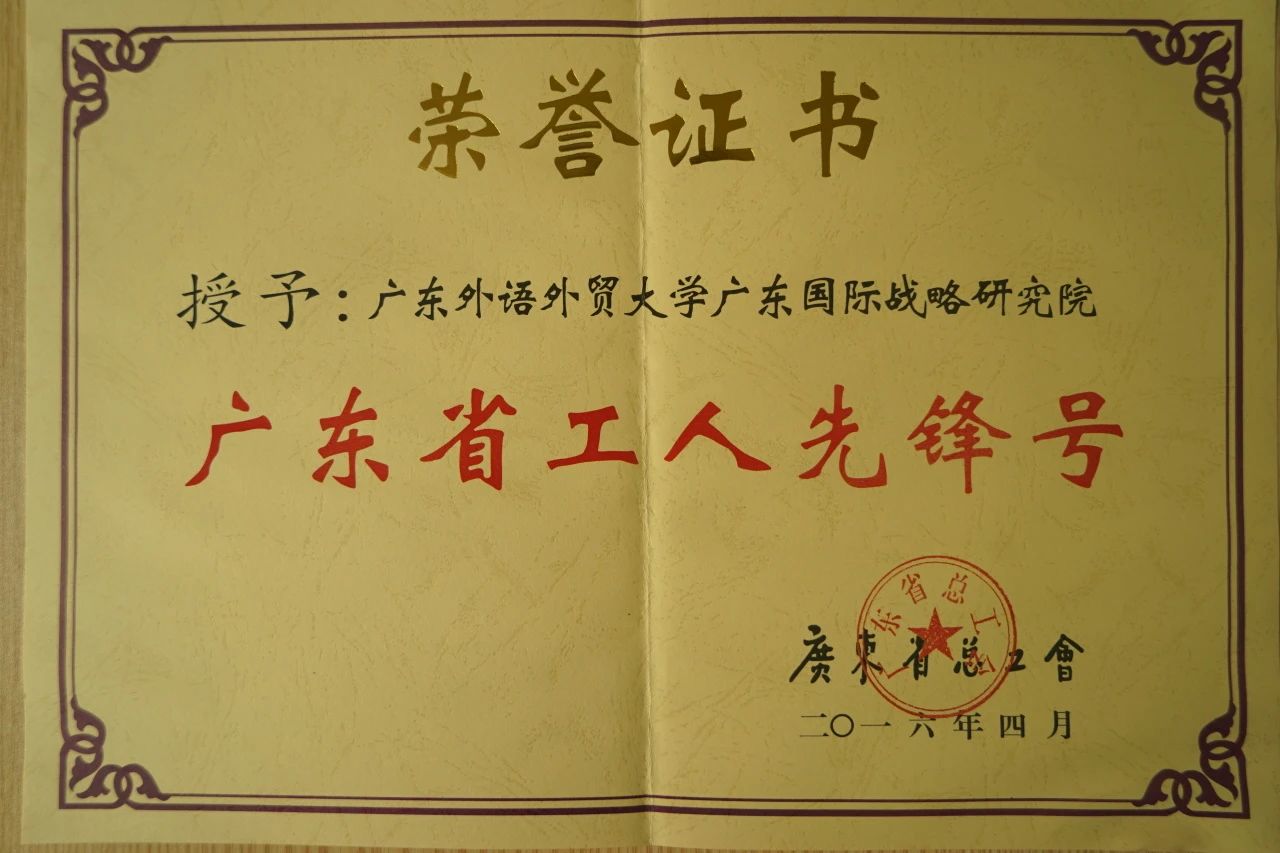 荣誉证书
授予：广东外语外贸大学广东国际战略研究院
广东省工人先锋号
广东省总工会
廣東省总工會
二〇一六年四月